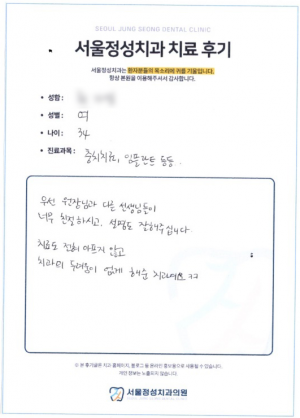 SEOUL JUNG SEONG DENTAL CLINIC
서울정성치과 치료 후기
서울정성치과는 환자분들의 목소리에 귀를 기울입니다.
항상 본원을 이용해주셔서 감사합니다.
• 성함 :
• 성별 : 여
• 나이 : 34
• 진료과목 : 충치치료, 임플란트 등등.
우선 원장님과 다른 선생님들이
너무 친절하시고, 설명도 잘해주십니다
치료도 전혀 아프지 않고
치과의 두려움이 없게 해준 치과예요 ㅋㅋ
※ 본 후기글은 치과 홈페이지, 블로그 등 온라인 홍보용으로 사용될 수 있습니다.
개인 정보는 노출되지 않습니다.
서울정성치과의원